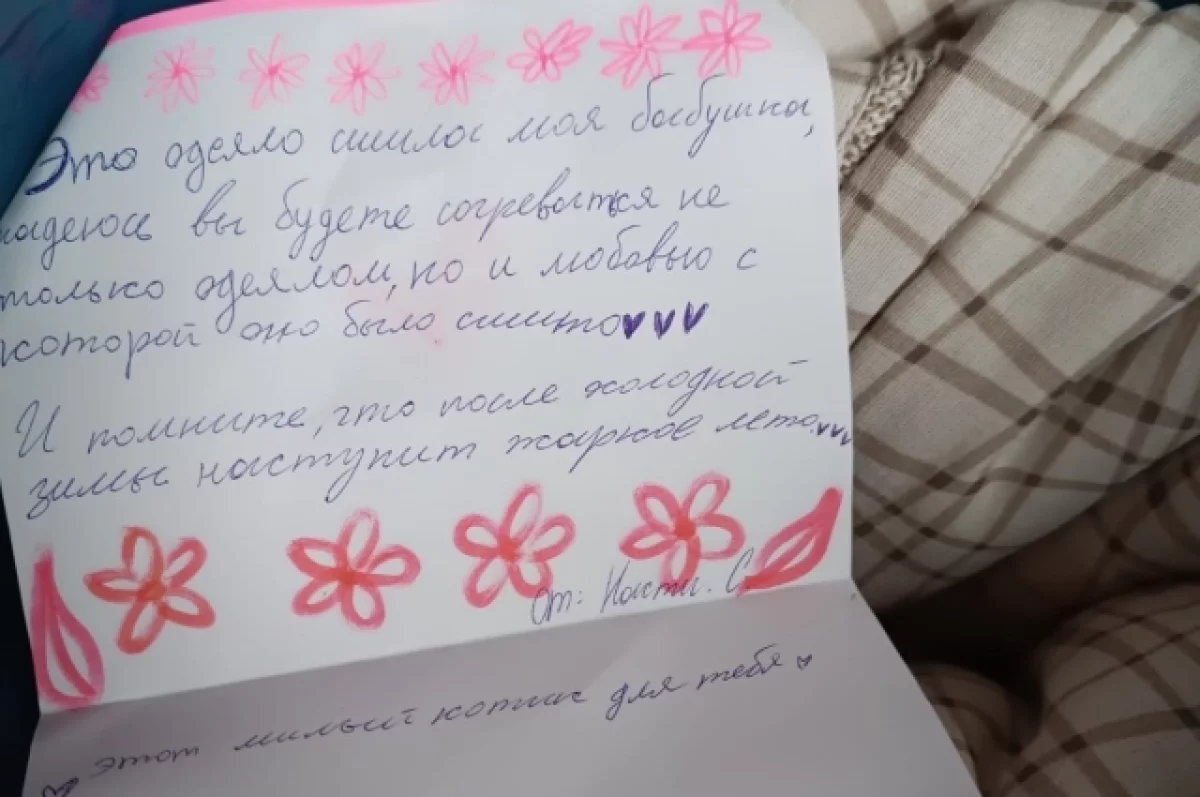 Это одеяло сшила моя бабушка,
надеюсь вы будете согреваться не
только одеялом, но и любовью с
которой оно было сшито
И помните, что после холодной
зимы наступит жаркое лето
От: Насти. С
этот милый котик для тебя